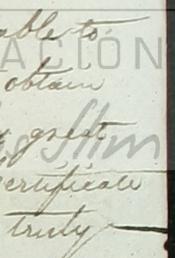 able to
ACIÓN
obtain
great
certificate
truly